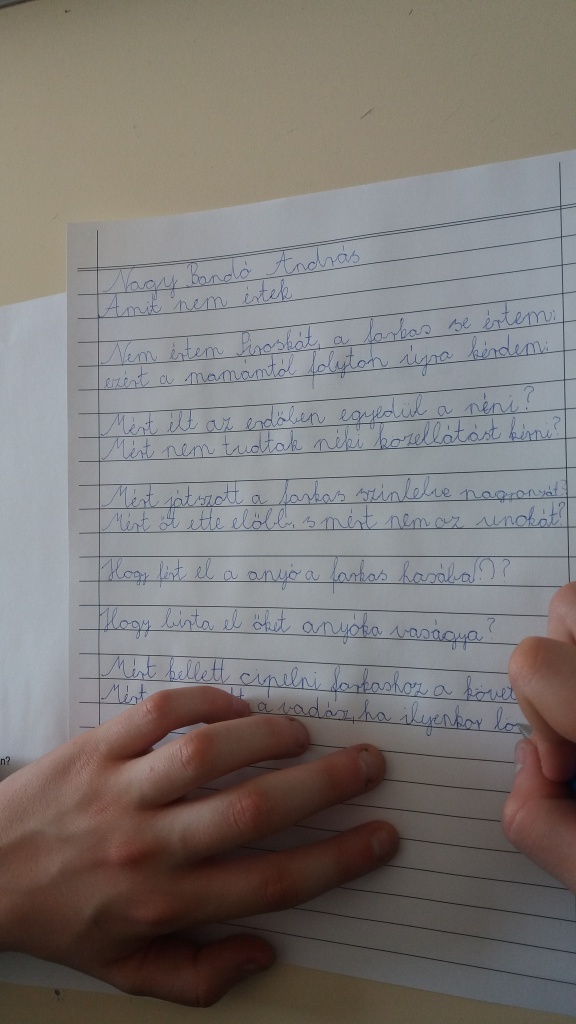 Nagy Bandó András
Amit nem értek
Nem értem Piroskát, a farkas se értem:
ezért a mamámtól folyton újra kérdem:
Mért élt az erdőben egyedül a néni?
Mért nem tudtak néki közellátást kérni?
Mért játszott a farkas színlelve nagyanyát?
Mért őt ette előbb, s mért nem az unokát?
Hogy fért el a anyó a farkas hasába(?)?
Hogy bírta el őket anyóka vaságya?
Mért kellett cipelni farkashoz a követ
Mért a vadász, ha ilyenkor
n?